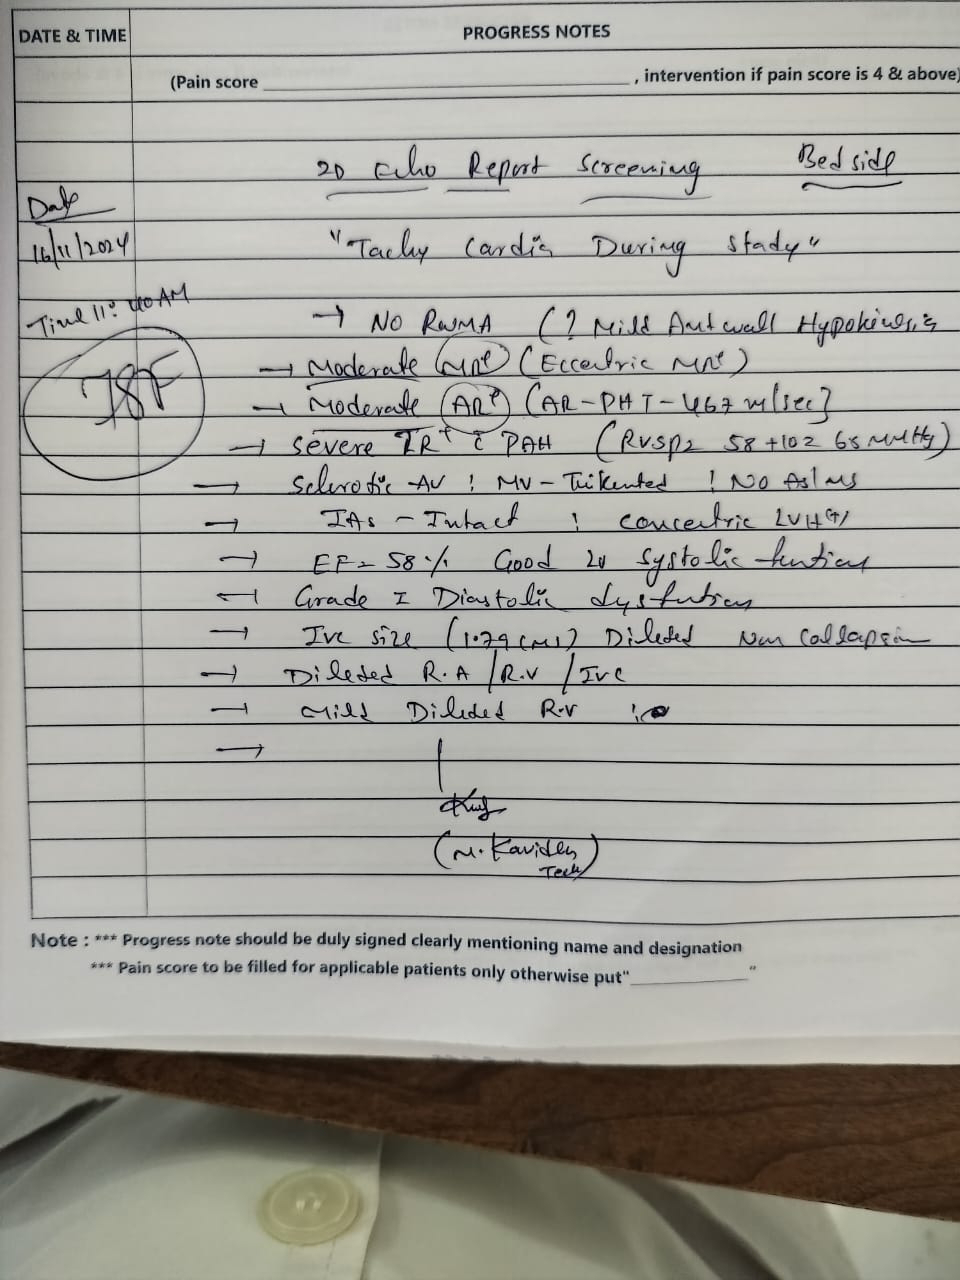 DATE & TIME
PROGRESS NOTES
(Pain score ____________ , intervention if pain score is 4 & above)
2D Echo Report Screening Bed side
Date
16/11/2024
"Tachy Cardia During Stady"
Time 11:40 AM
→ NO RWMA (? Mild Ant wall Hypokinesis
78/F
→ Moderate MR+ (Eccentric MR+)
→ Moderate AR+ (AR-PHT-467 m/sec]
→ Severe TR+ c̄ PAH (RVSP= 58+10= 68 mmHg)
→ Sclerotic AV ; MV - Thikented ; NO AS/MS
→ IAS - Intact ; Concentric LVH(+)
→ EF= 58% Good LV Systolic function
→ Grade I Diastolic dysfuntion
→ IVC size (1.79 cms) Dileted Non Collapsin
→ Dileted R.A /R.V /IVC
→ Mild Dileted R.V
→
(M. Kaviden)
Tech
Note : *** Progress note should be duly signed clearly mentioning name and designation
*** Pain score to be filled for applicable patients only otherwise put"____________"